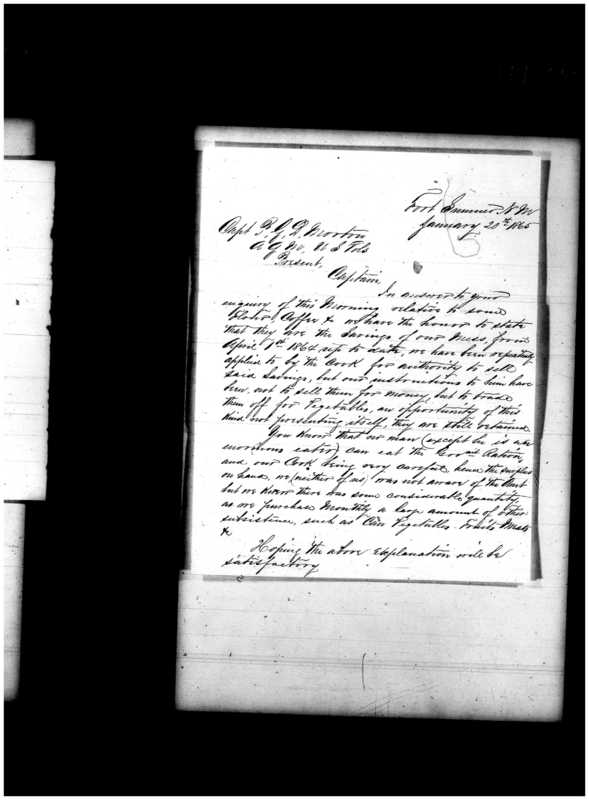 Fort Sumner N. M
January 20th 1865
Capt P. G. D. Morton
A Q M. U S Vols
Present.
Captain
In answer to your
enquiry of this Morning relative to some
Flour, Coffee & we have the honor to state
that they are the Savings of our Mess, from
April 1st 1864 up to date, we have been repeatedly
applied to by the Cook for authority to sell
said Savings, but our instructions to him have
been, not to sell them for money, but to trade
them off for Vegetables, an opportunity of this
Kind not presenting itself, they are still retained
You know that no man (except he is an
enormous eater) can eat the Govmt Ration,
and our Cook being very careful hence the surplus
on hand, we (neither of us) was not aware of the Amt
but we knew there was some considerable quantity,
as we purchase Monthly a large amount of other
subsistence, such as Can Vegetables. Fruits, Meats
&
Hoping the above explanation will be
satisfactory